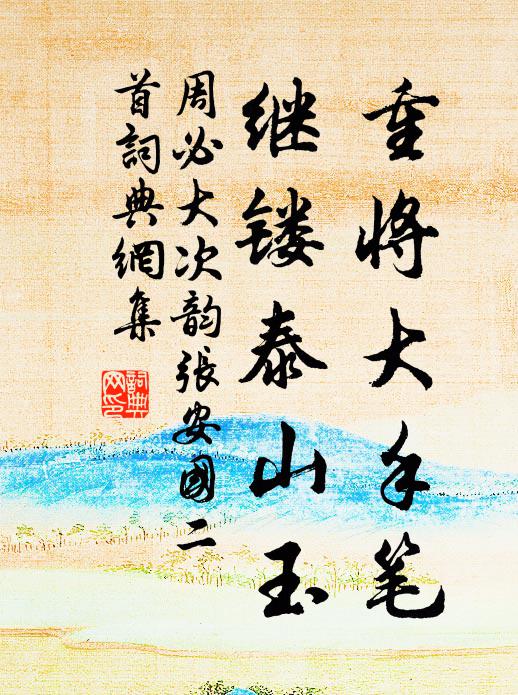 重将大手笔
继镂泰山玉
周必大次韵張安國二
首詞典網集
詞典
网印